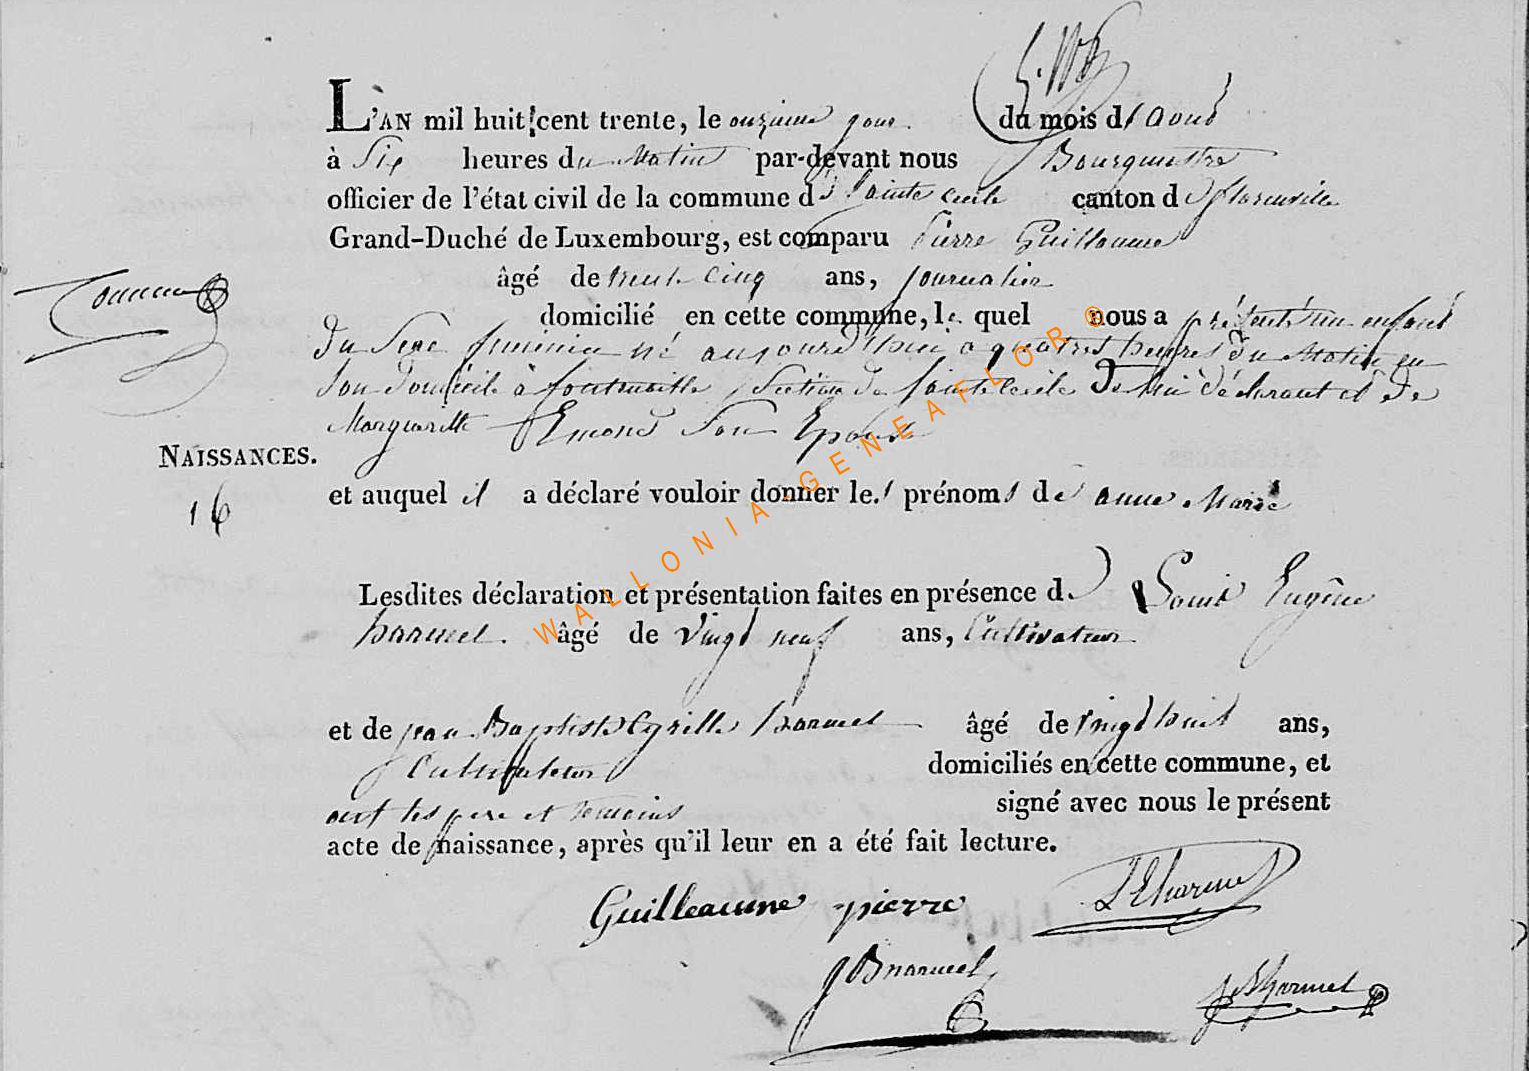 L'AN mil huit cent trente, le onzieme jour du mois d'aout
à Six heures du Matin par-devant nous Bourguestre
officier de l'état civil de la commune de Sainte cecile canton de florenville
Grand-Duché de Luxembourg, est comparu Pierre Guillaume
âgé de trente cinq ans, journalier
domicilié en cette commune, le quel nous a présenté un enfant
du Sexe feminin né aujourd'hui a quatres heures du Matin en
son domicile à fontenoille Section de Sainte Cecile De lui déclarant et de
Margueritte Emond Son Epouse
NAISSANCES.
16
et auquel il a déclaré vouloir donner les prénoms de anne Marie
Lesdites déclaration et présentation faites en présence de Louis Eugêne
harmel. âgé de vingt neuf ans, Cultivateur
et de jean Baptiste Cyrille harmel âgé de vingt huit ans,
Cultivateur domiciliés en cette commune, et
ont les pere et temoins signé avec nous le présent
acte de naissance, après qu'il leur en a été fait lecture.
Guilleaume pierre LEharmel
JBharmel JBharmel
WALLONIA-GENEAFLOR ®